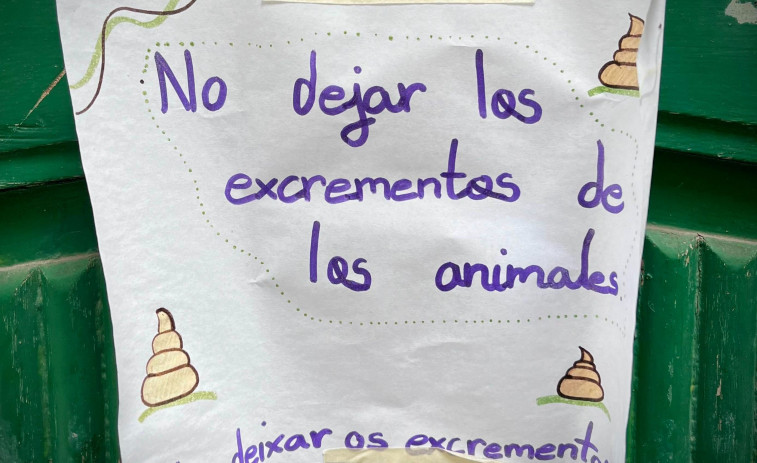 No dejar los
excrementos de
los animales
deixar os excremento